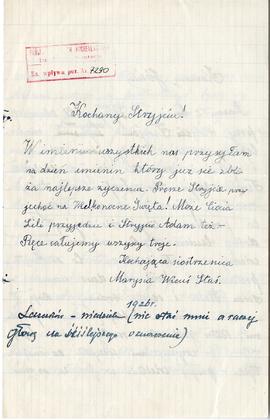 Ks. wpływu poz. Nr 7290
Kochany Stryjciu!
W imieniu wszystkich nas przysyłam
na dzień imienin który już się zbli-
ża najlepsze życzenia. Prosze Stryjcia przy
jechać na Wielkanocne Święta! Może Ciocia
Lili przyjedzie i Stryjcio Adam też.-
Ręce całujemy wszyscy troje.
Kochająca siostrzenica
Marysia Wicuś Staś.
1926r.
niedziela (nie stać mnie a raczej
głowę na ściślejszego oznaczenie)